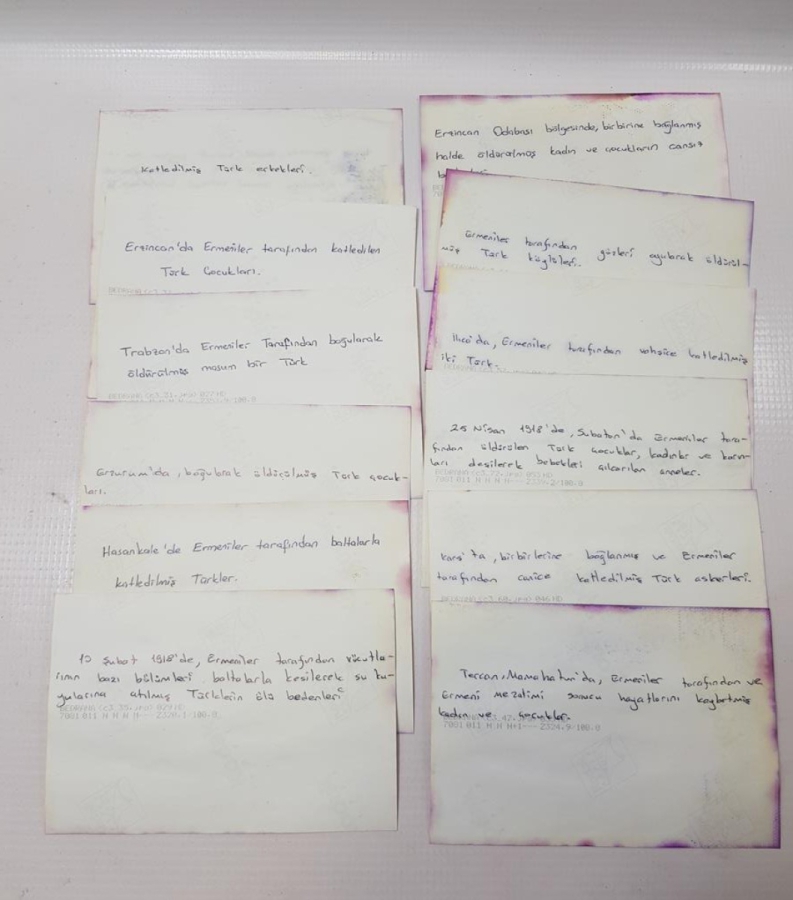 Katledilmiş Türk erkekleri.
Erzincan'da Ermeniler tarafından katledilen
Türk Çocukları.
Trabzon'da Ermeniler Tarafından boğularak
öldürülmüş masum bir Türk
Erzurum'da, boğularak öldürülmüş Türk çocuk-
ları.
Hasankale'de Ermeniler tarafından baltalarla
katledilmiş Türkler.
Şubat 1918'de, Ermeniler tarafından vücutla-
rının bazı bölümleri baltalarla kesilerek su ku-
yularına atılmış Türklerin ölü bedenleri
7001 011 N N N H--- 2320.1-100.0
Erzincan Odabaşı bölgesinde, birbirine bağlanmış
halde öldürülmüş kadın ve çocukların cansız
Ermeniler tarafından gözleri oyularak öldürül-
müş Türk köylüleri.
Ilıca'da, Ermeniler tarafından vahşice katledilmiş
iki Türk.
25 Nisan 1918'de, Subatan'da Ermeniler tara-
fından öldürülen Türk çocuklar, kadınlar ve karın-
ları deşilerek bebekleri çıkarılan anneler.
Kars'ta, birbirlerine bağlanmış ve Ermeniler
tarafından canice katledilmiş Türk askerleri.
Tercan, Mamahatun'da, Ermeniler tarafından ve
Ermeni mezalimi sonucu hayatlarını kaybetmiş
kadın ve çocuklar.
7001 011 N N H+1--- 2324.9-100.0